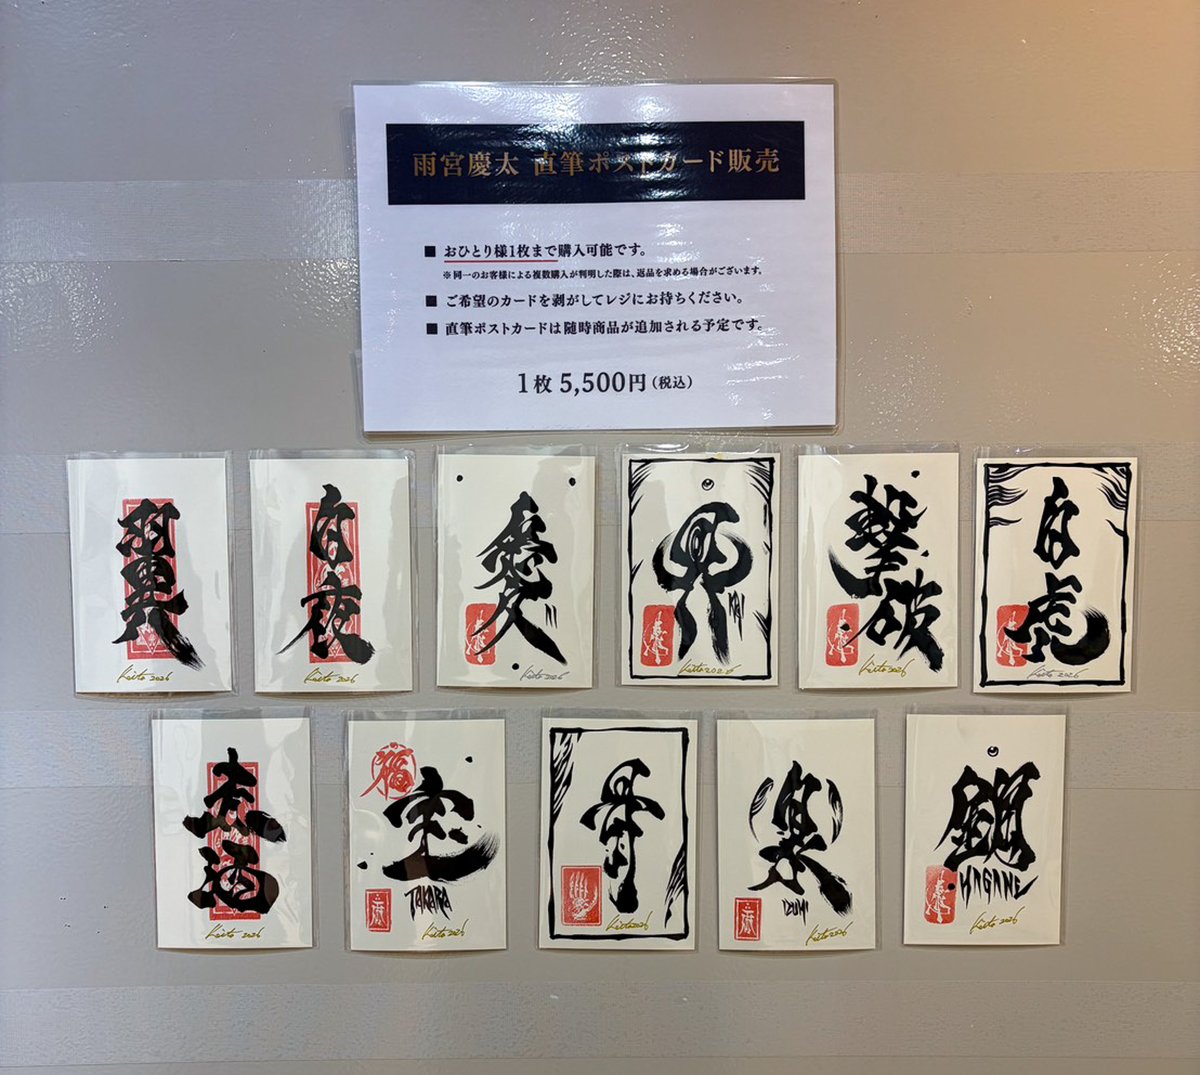 雨宮慶太 直筆ポストカード販売
■ おひとり様1枚まで購入可能です。
※ 同一のお客様による複数購入が判明した際は、返品を求める場合がございます。
■ ご希望のカードを剥がしてレジにお持ちください。
■ 直筆ポストカードは随時商品が追加される予定です。
1枚 5,500円（税込）
翼
Keita 2026
白夜
Keita 2026
Keita 2026
KAI
Keita 2026
撃破
Keita 2026
白虎
Keita 2026
Keita 2026
福
宝
TAKARA
Keita 2026
骨
Keita 2026
泉
IZUMI
Keita 2026
HAGANE
Keita 2026